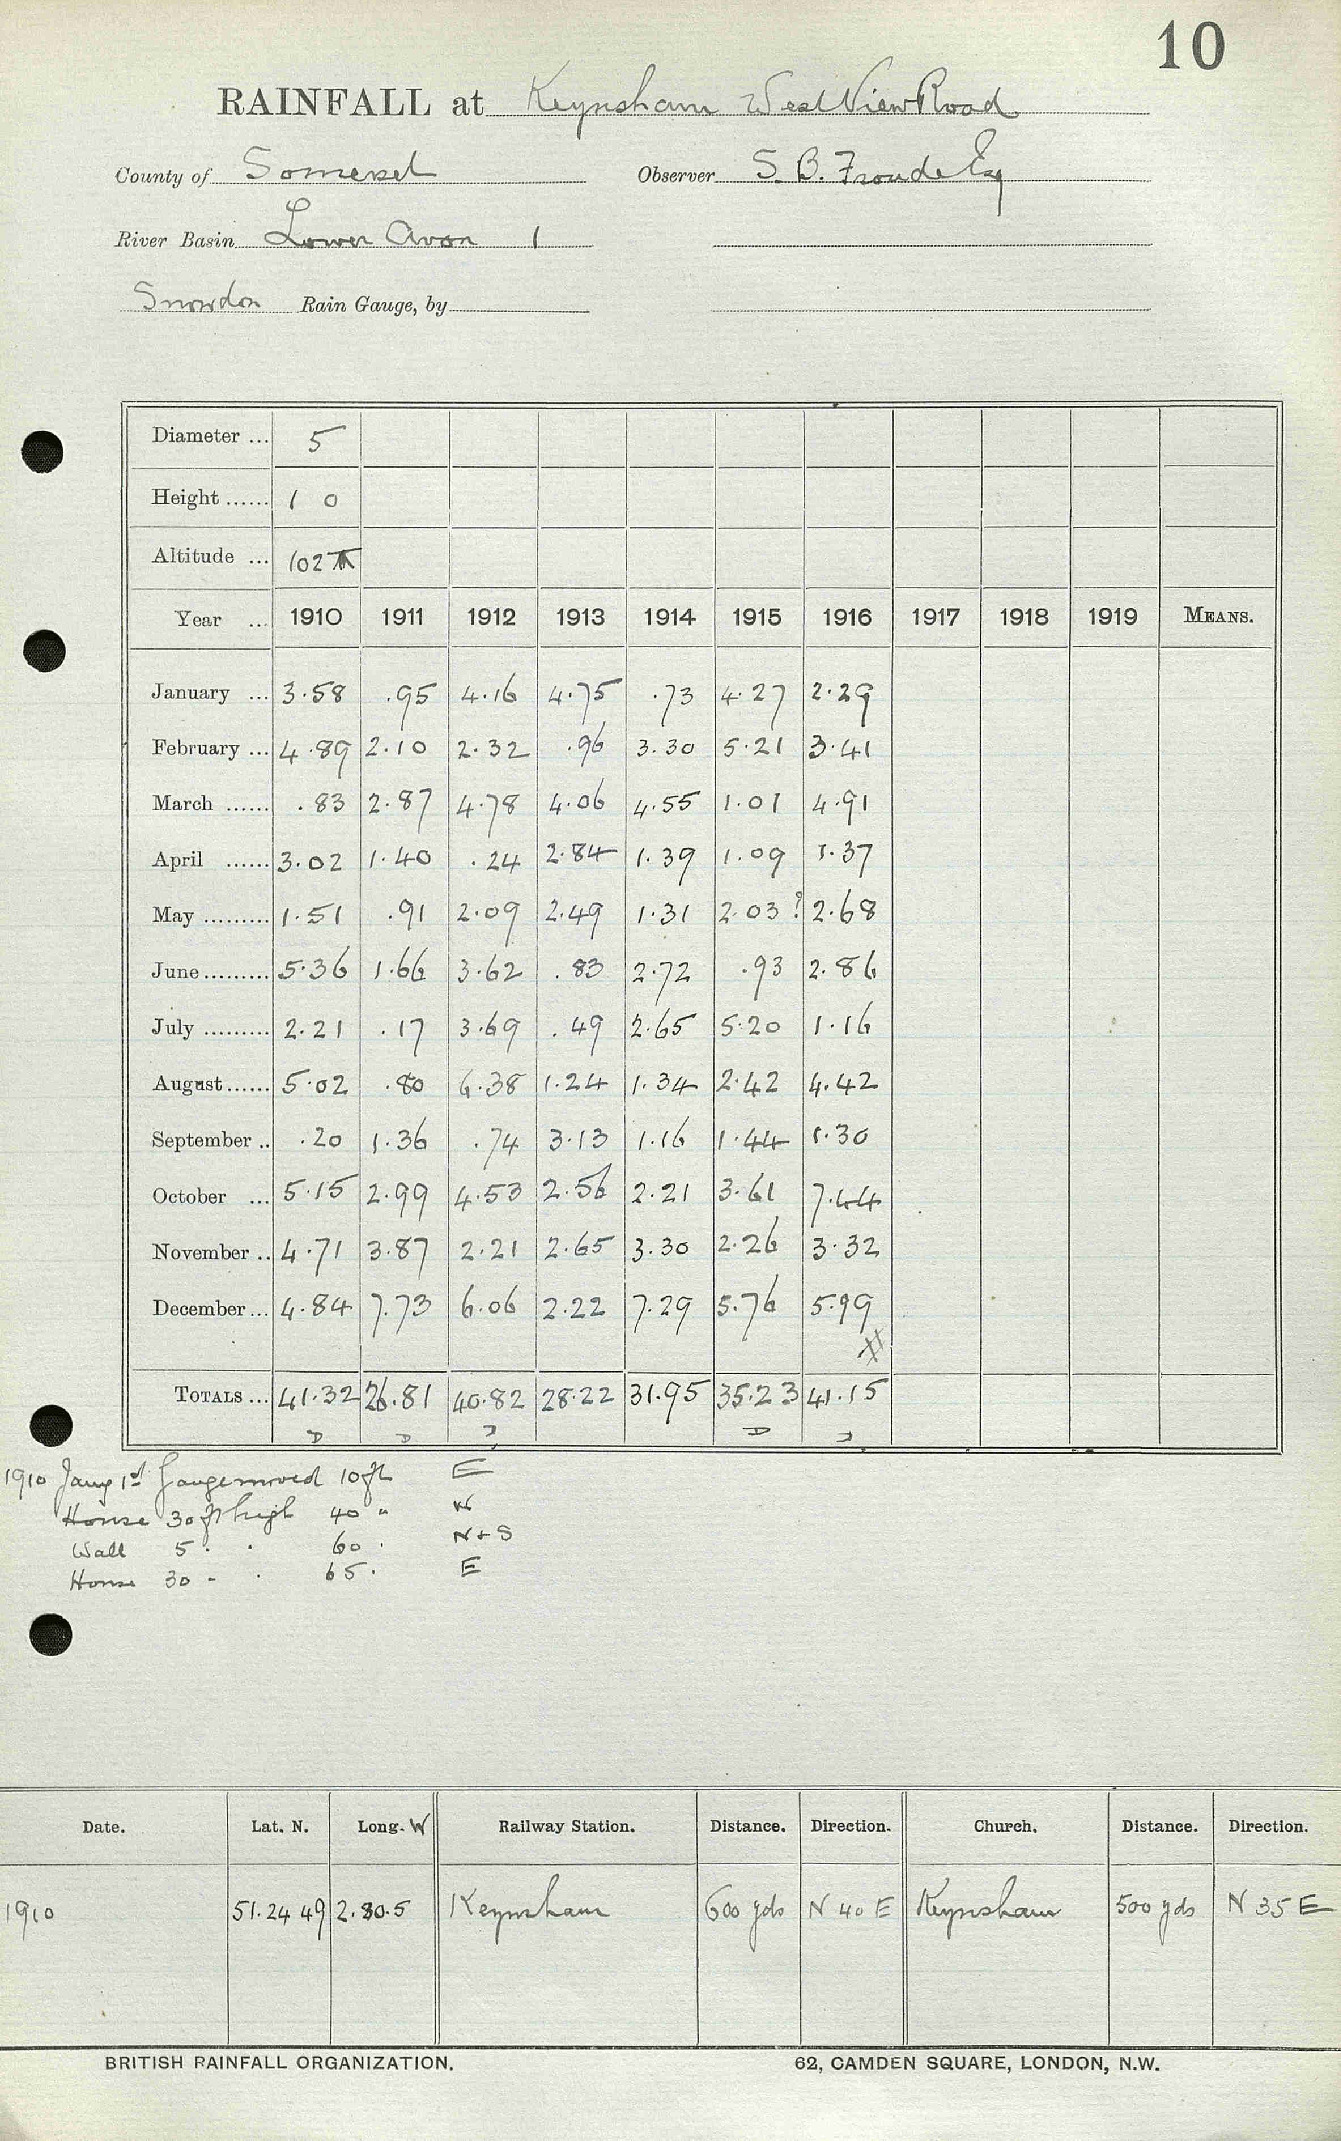 10
RAINFALL at Keynsham West View Road
County of Somerset Observer S. B. Froude Esq
River Basin Lower Avon 1
Snowdon Rain Gauge, by
Diameter ... 5
Height ...... 1 0
Altitude ... 102
Year ... 1910 1911 1912 1913 1914 1915 1916 1917 1918 1919 MEANS.
January ... 3.58 .95 4.16 4.75 .73 4.27 2.29
February ... 4.89 2.10 2.32 .96 3.30 5.21 3.41
March ...... .83 2.87 4.78 4.06 4.55 1.01 4.91
April ...... 3.02 1.40 .24 2.84 1.39 1.09 1.37
May ......... 1.51 .91 2.09 2.49 1.31 2.03 ? 2.68
June ......... 5.36 1.66 3.62 .83 2.72 .93 2.86
July ......... 2.21 .17 3.69 .49 2.65 5.20 1.16
August ...... 5.02 .80 6.38 1.24 1.34 2.42 4.42
September .. .20 1.36 .74 3.13 1.16 1.44 1.30
October ... 5.15 2.99 4.53 2.56 2.21 3.61 7.44
November .. 4.71 3.87 2.21 2.65 3.30 2.26 3.32
December ... 4.84 7.73 6.06 2.22 7.29 5.76 5.99
TOTALS ... 41.32 26.81 40.82 28.22 31.95 35.23 41.15
D D D D D
1910 Jany 1st Gauge moved 10 ft E
House 30 ft high 40 " W
Wall 5 " " 60 " N + S
House 30 " " 65 " E
Date. Lat. N. Long. W Railway Station. Distance. Direction. Church. Distance. Direction.
1910 51.24 49 2.30.5 Keynsham 600 yds N 40 E Keynsham 500 yds N 35 E
BRITISH RAINFALL ORGANIZATION. 62, CAMDEN SQUARE, LONDON, N.W.